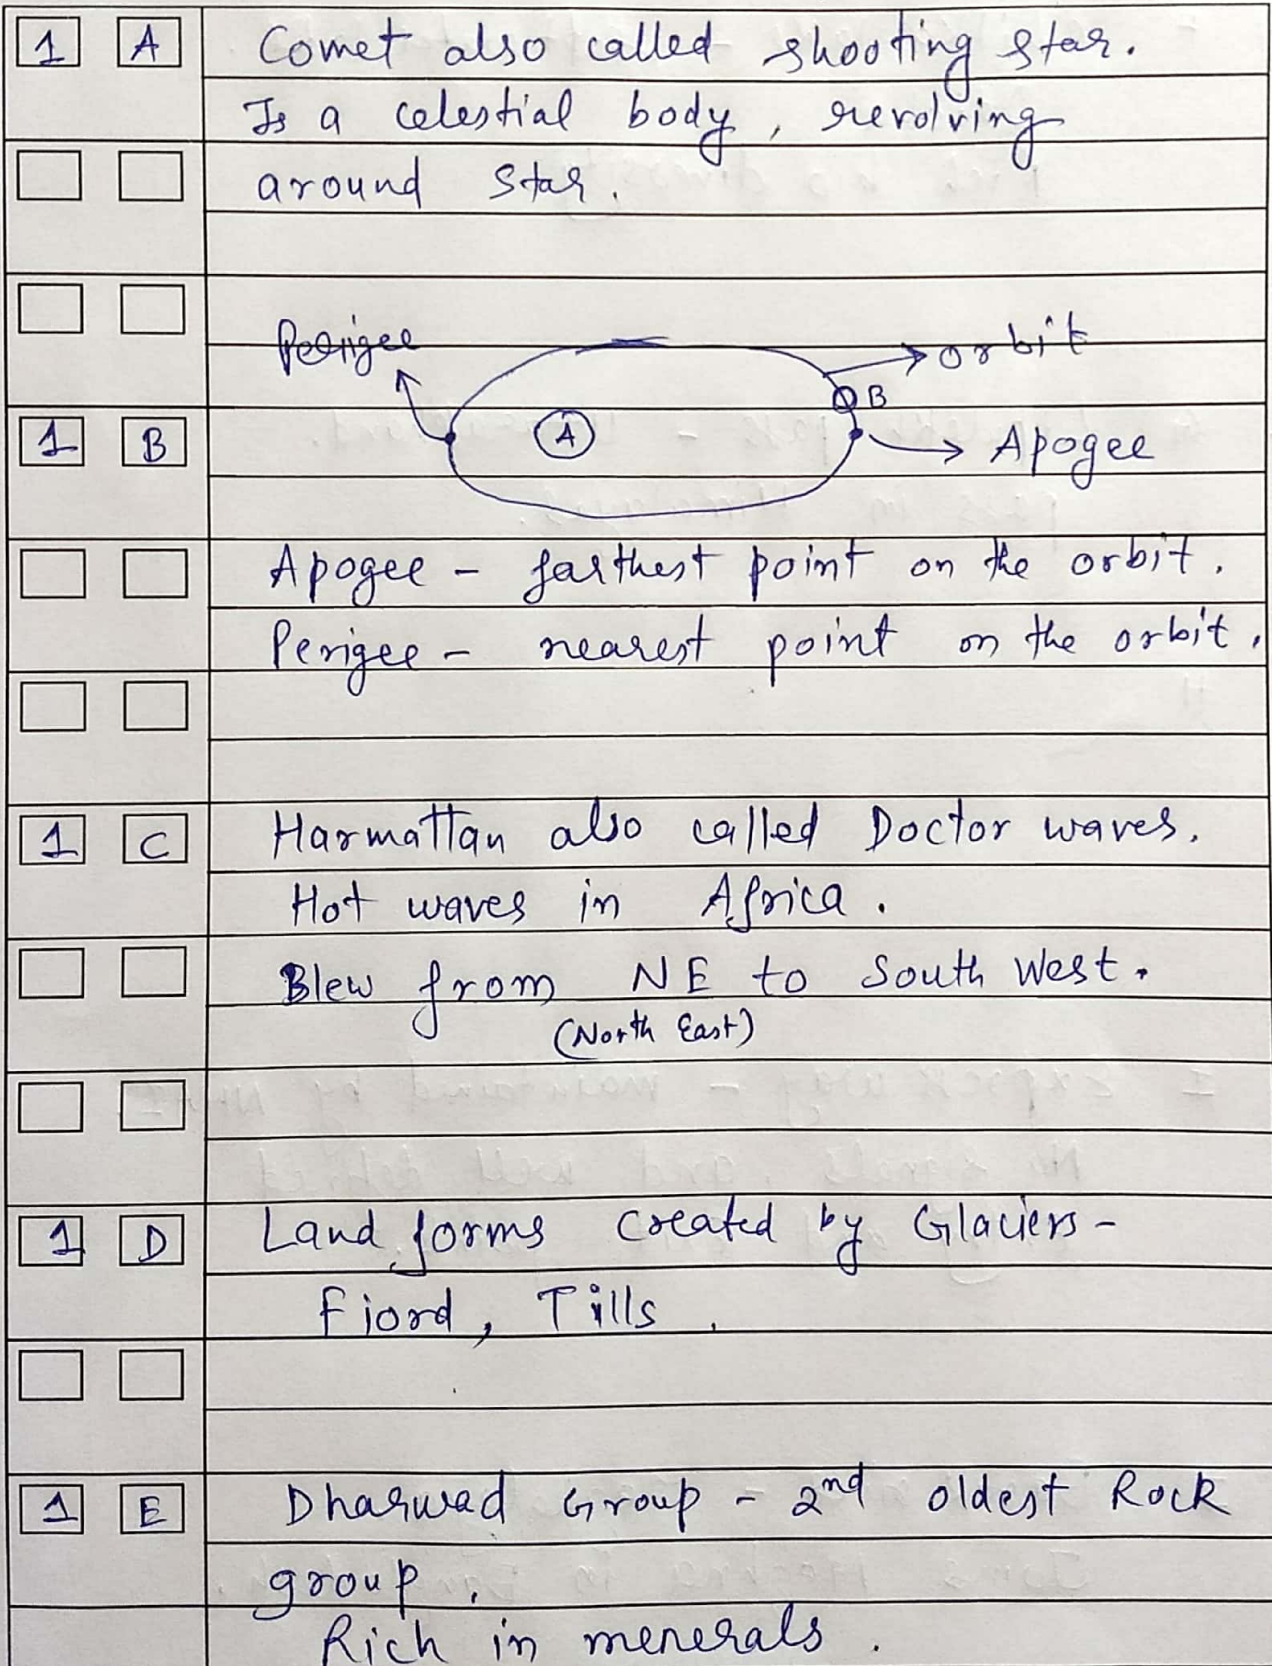 1 A Comet also called shooting star.
Is a celestial body, revolving
around star.
Perigee
orbit
B
1 B
A
Apogee
Apogee - farthest point on the orbit.
Perigee - nearest point on the orbit.
1 C Harmattan also called Doctor waves.
Hot waves in Africa.
Blew from NE to South West.
(North East)
1 D Land forms created by Glaciers -
Fiord, Tills.
1 E Dharwad Group - 2nd oldest Rock
group.
Rich in menerals.